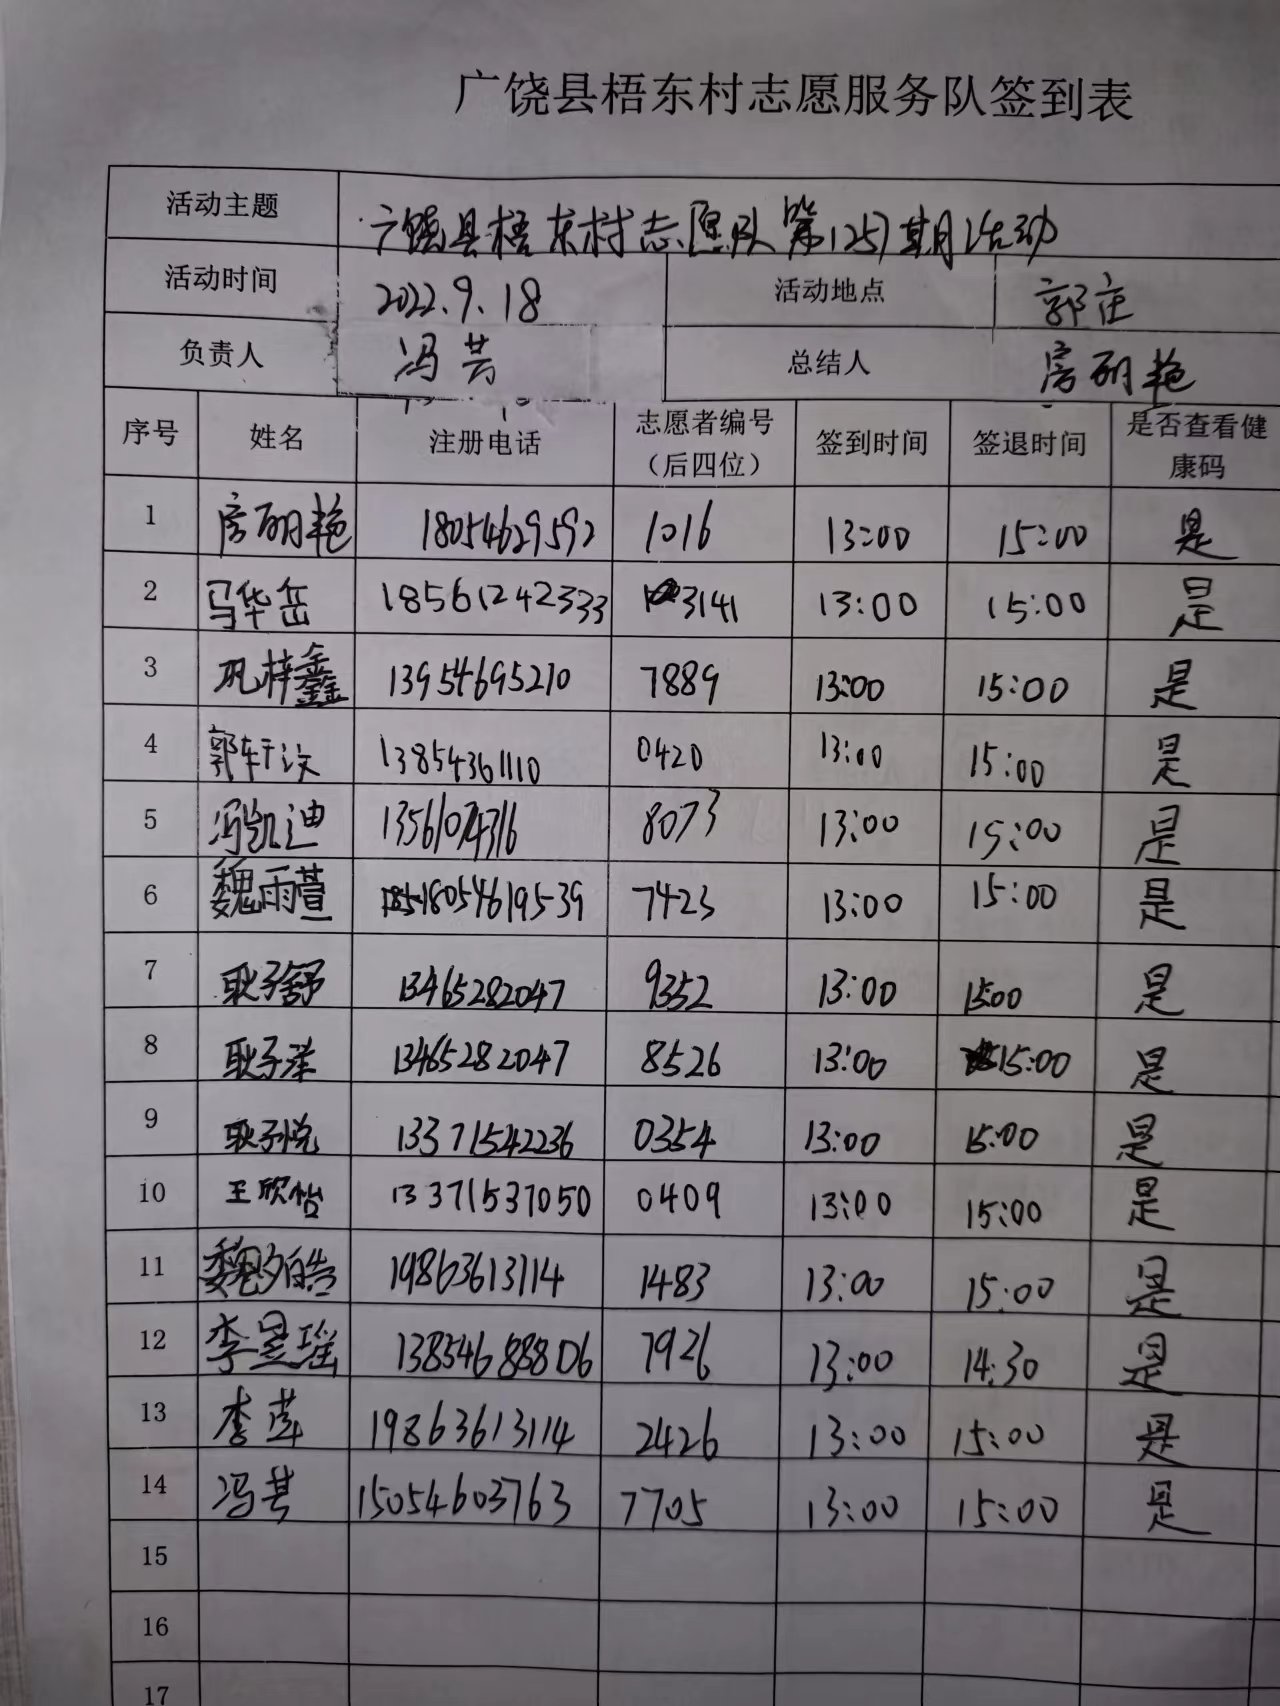 广饶县梧东村志愿服务队签到表
活动主题 广饶县梧东村志愿队第1257期活动
活动时间 2022.9.18 活动地点 郭庄
负责人 冯芸 总结人 房丽艳
序号 姓名 注册电话 志愿者编号（后四位） 签到时间 签退时间 是否查看健康码
1 房丽艳 18054629592 1016 13:00 15:00 是
2 马华岳 18561242333 3141 13:00 15:00 是
3 巩梓鑫 13954695210 7889 13:00 15:00 是
4 郭轩汶 13854361110 0420 13:00 15:00 是
5 冯凯迪 8073 13:00 15:00 是
6 魏雨萱 18054619539 7423 13:00 15:00 是
7 耿子舒 13465282047 9352 13:00 1500 是
8 耿子洋 13465282047 8526 13:00 15:00 是
9 耿子悦 13371542236 0354 13:00 15:00 是
10 王欣怡 13371537050 0409 13:00 15:00 是
11 魏夕皓 19863613114 1483 13:00 15:00 是
12 李昱瑶 13854688806 7926 13:00 14:30 是
13 李 19863613114 2426 13:00 15:00 是
14 冯芸 15054603763 7705 13:00 15:00 是
15
16
17